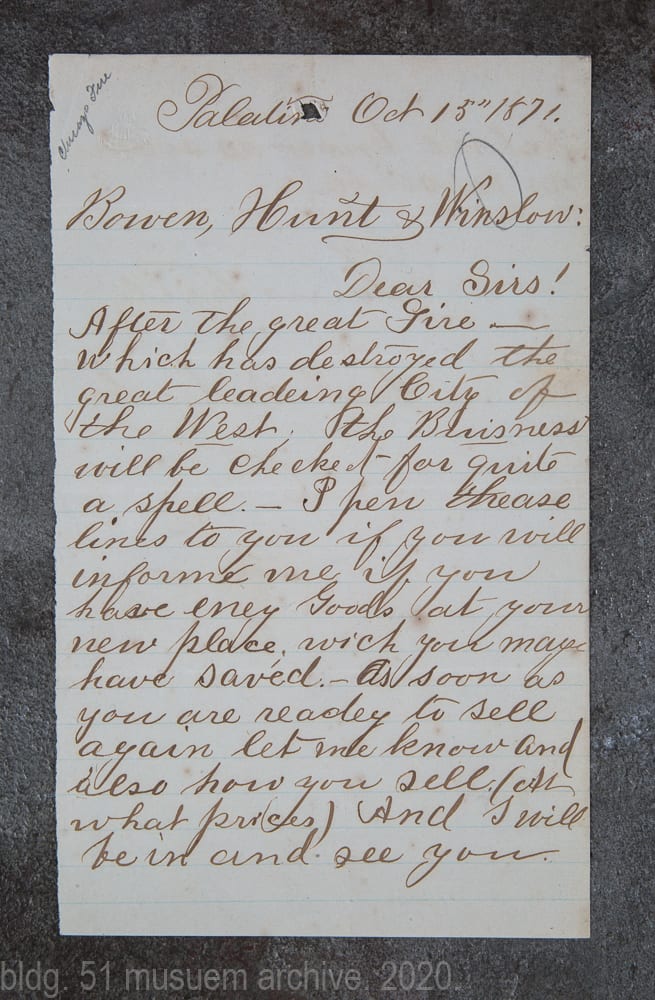 Chicago Fire
Palatine Oct 15" 1871.
Bowen, Hunt & Winslow:
Dear Sirs!
After the great Fire —
which has destroyed the
great leadeing City of
the West. The Buisness
will be checked for quite
a spell. — I pen thease
lines to you if you will
informe me if you
have eney Goods at your
new place. wich you maye
have saved. — As soon as
you are readey to sell
again let me know and
also how you sell. (At
what prices) And I will
be in and see you.
bldg. 51 musuem archive. 2020.